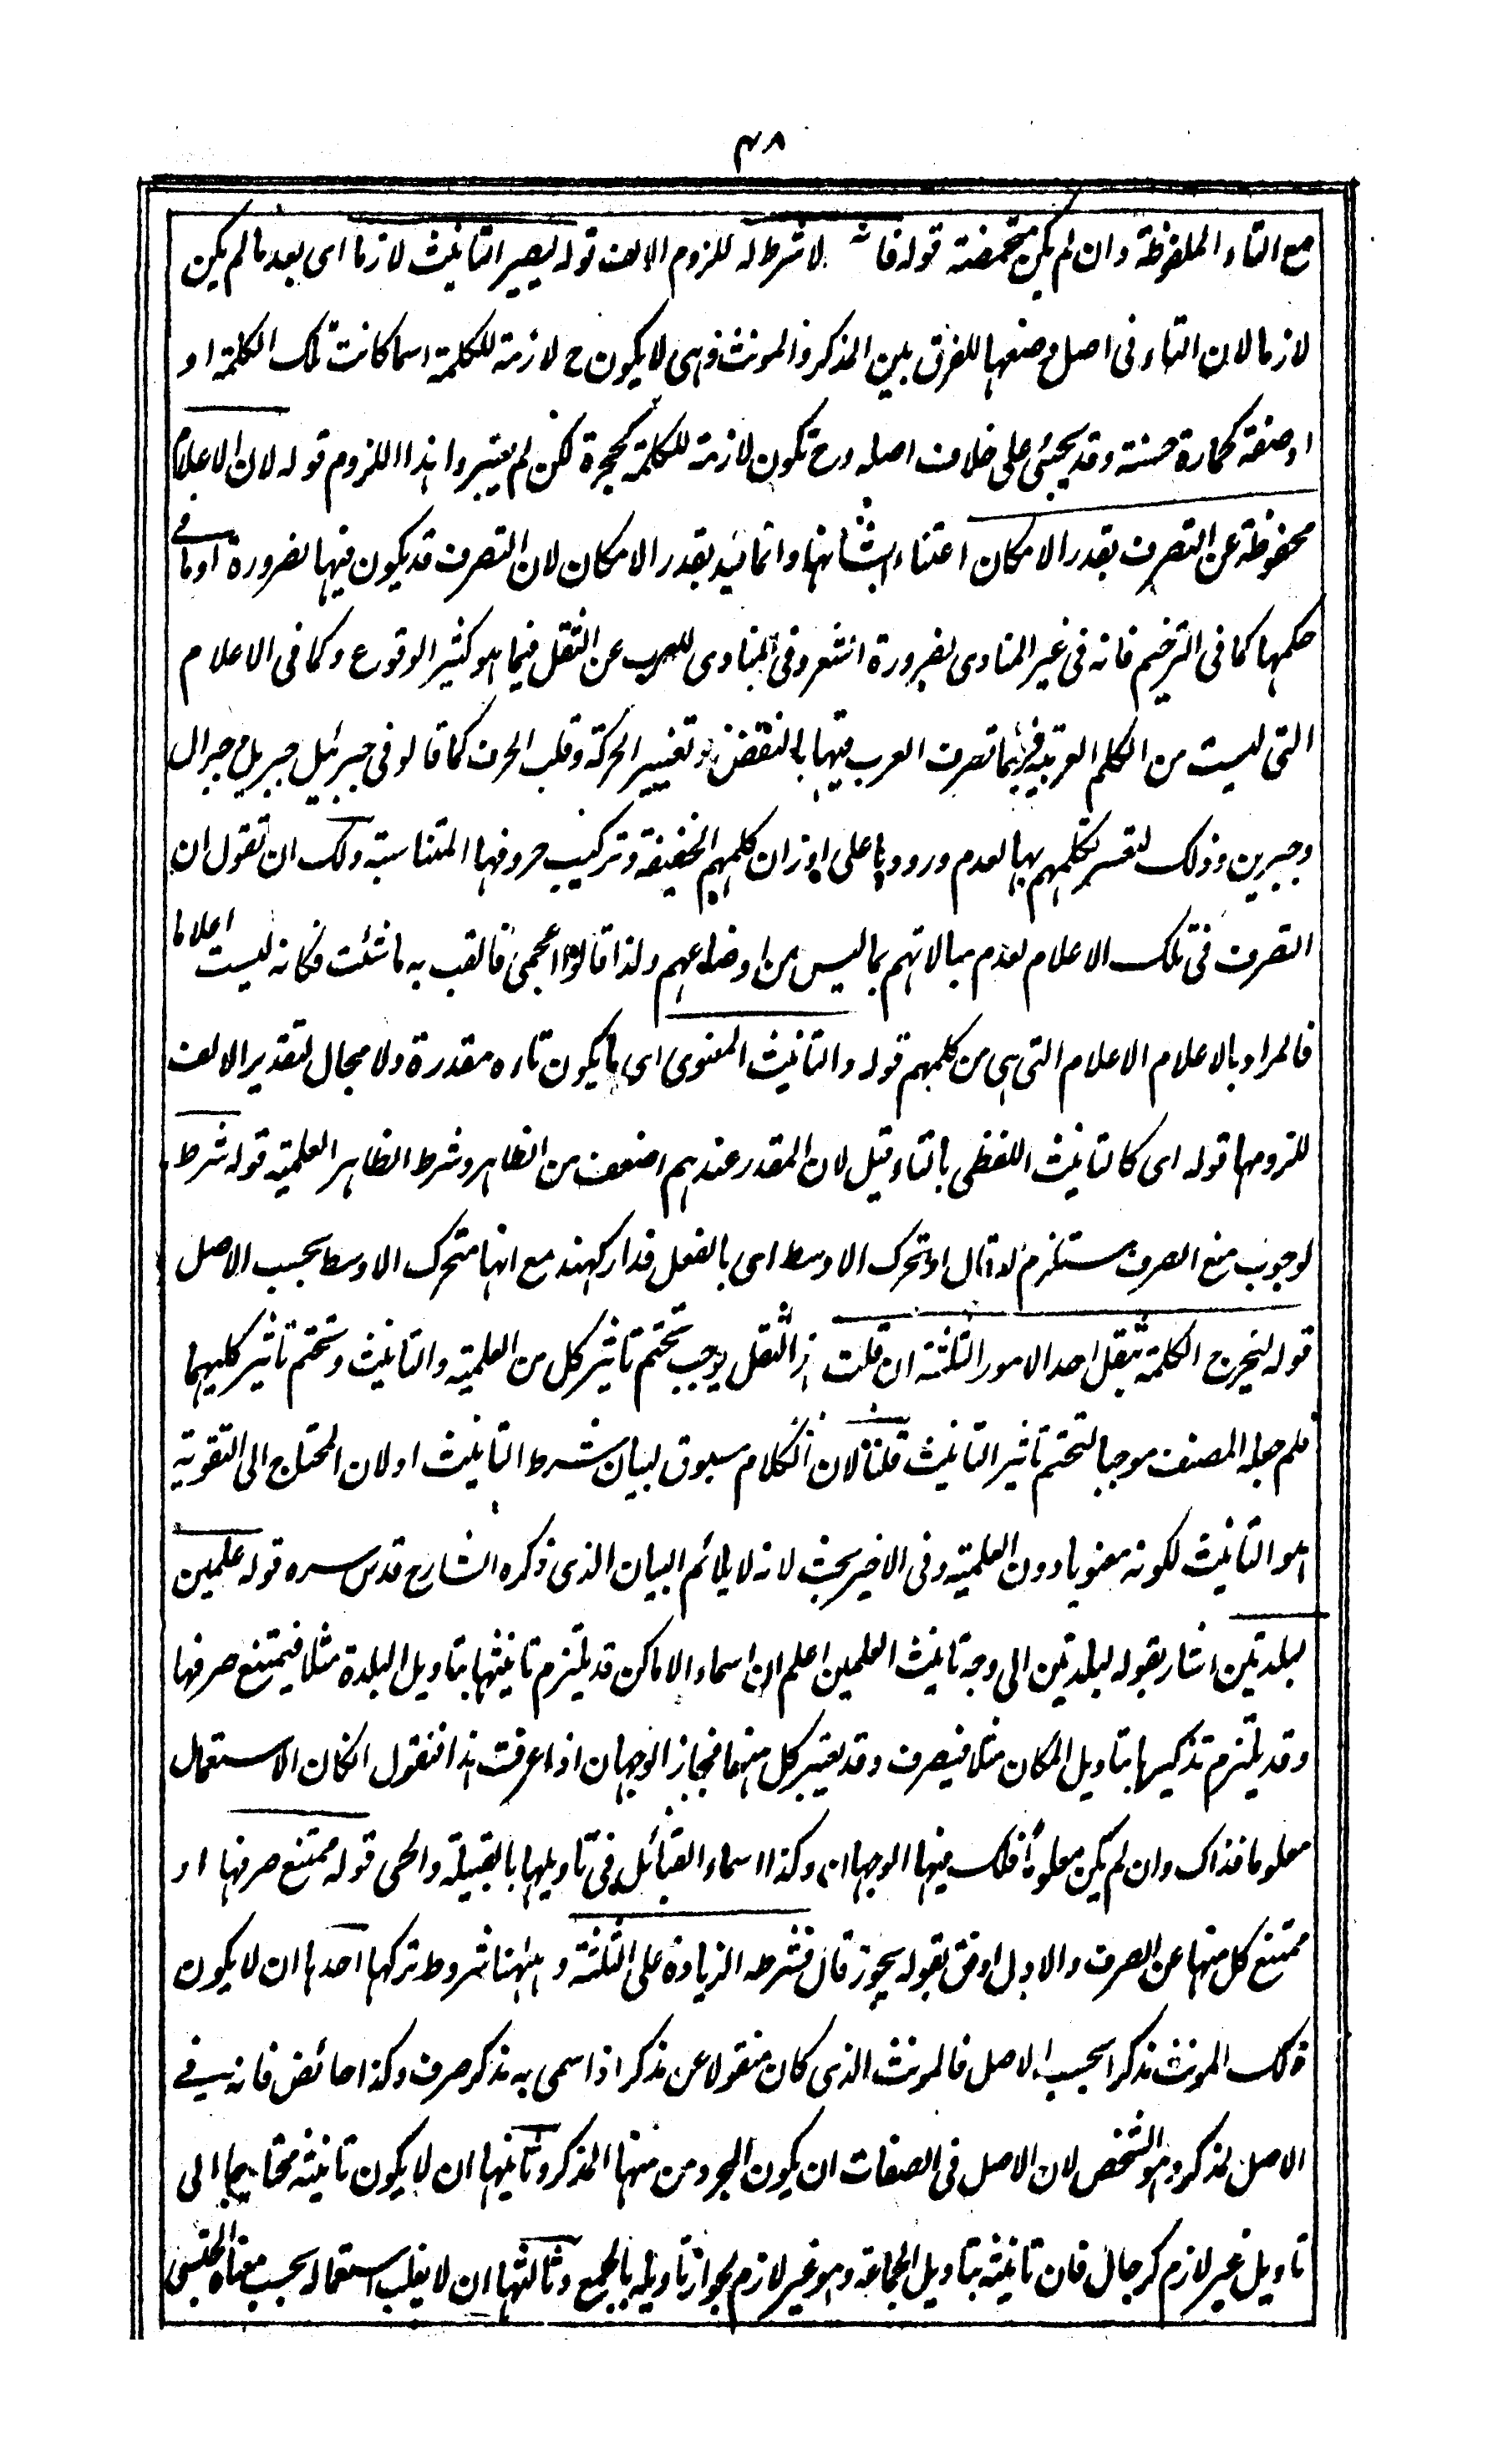 ٤٨
مع التاء الملفوظة وان لم يكن متمحضة قوله فانه لا شرط له للزوم الالف قوله ليصير التانيث لازما اى بعد ما لم يكن
لازما لان التاء فى اصل وضعها للفرق بين المذكر والمونث وهى لا يكون ح لازمة للكلمة اسما كانت تلك الكلمة او
او صفة كحمارة حسنة وقد يجيئ على خلاف اصله وح تكون لازمة للكلمة كحجرة لكن لم يعتبروا هذا اللزوم قوله لان الاعلام
محفوظة عن التصرف بقدر الامكان اعتناء بشانها وانما قيد بقدر الامكان لان التصرف قد يكون فيها لضرورة او ما فى
حكمها كما فى الترخيم فانه فى غير المنادى لضرورة الشعر وفى المنادى للهرب عن الثقل فيما هو كثير الوقوع وكما فى الاعلام
التى ليست من الكلم العربية فربما تصرف العرب فيها بالنقض وتغيير الحركة وقلب الحرف كما قالو فى جبرئيل جبريل وجبرال
وجبرين وذلك لتعسر تكلمهم بها لعدم ورودها على اوزان كلمهم الخفيفة وتركيب حروفها المتناسبة ولك ان تقول ان
التصرف فى تلك الاعلام لعدم مبالاتهم بما ليس من اوضاعهم ولذا قالوا اعجمى فالقب به ما شئت فكانه ليست اعلاما
فالمراد بالاعلام الاعلام التى هى من كلمهم قوله والتانيث المعنوى اى ما يكون تاءه مقدرة ولا مجال لتقدير الالف
للزومها قوله اى كالتانيث اللفظى بالتاء قيل لان المقدر عندهم اضعف من الظاهر وشرط الظاهر العلمية قوله شرط
لوجوب منع الصرف مستلزم له قال او تحرك الاوسط اى بالفعل فدار كهند مع انها متحرك الاوسط بحسب الاصل
قوله ليخرج الكلمة بثقل احد الامور الثلثة ان قلت هذا الثقل يوجب تحتم تاثير كل من العلمية والتانيث وتحتم تاثير كليهما
فلم جعله المصنف موجبا لتحتم تاثير التانيث قلنا لان الكلام مسوق لبيان شرط التانيث او لان المحتاج الى التقوية
هو التانيث لكونه معنويا دون العلمية وفى الاخير بحث لانه لا يلائم البيان الذى ذكره الشارح قدس سره قوله علمين
لبلدتين اشار بقوله لبلدتين الى وجه تانيث العلمين اعلم ان اسماء الاماكن قد يلتزم تانيثها بتاويل البلدة مثلا فيمتنع صرفها
وقد يلتزم تذكيرها بتاويل المكان مثلا فيصرف وقد يعتبر كل منهما فجاز الوجهان اذا عرفت هذا فنقول انكان الاستعمال
معلوما فذاك وان لم يكن معلوما فلك فيها الوجهان وكذا اسماء القبائل فى تاويلها بالقبيلة والحى قوله ممتنع صرفها او
ممتنع كل منها عن الصرف والاول اوفق بقوله يجوز قال فشرطه الزيادة على الثلثة وههنا شروط تركها احدها ان لا يكون
ذلك المونث مذكرا بحسب الاصل فالمونث الذى كان منقولا عن مذكر اذا سمى به مذكر صرف وكذا حائض فانه فى
الاصل لمذكر وهو الشخص لان الاصل فى الصفات ان يكون المجرد من منها المذكر وثانيها ان لا يكون تانيثه محتاجا الى
تاويل غير لازم كرجال فان تانيثه بتاويل الجماعة وهو غير لازم لجواز تاويله بالجمع وثالثها ان لا يغلب استعماله بحسب معناه الجنسى